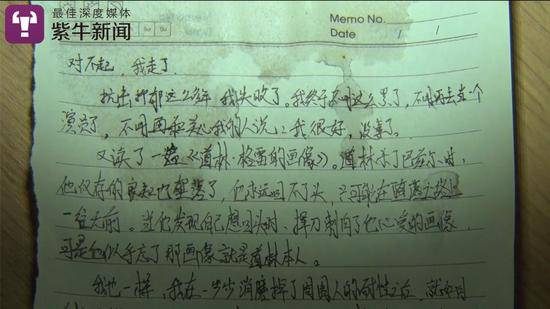 最佳深度媒体
紫牛新闻
Memo No.
Date / /
对不起，我走了
抗击抑郁这么多年 我失败了。我终于不用这么累了，不用再去当一个
演员了，不用再和关心我的人说：我很好，没事了。
又读了一篇《道林·格雷的画像》。道林杀了巴兹尔时，
他仅存的良知也坠落了，他永远回不了头，只可能在堕落上越
一往无前。当他发现自己想回头时，挥刀刺向了他心爱的画像，
可是他似乎忘了那画像就是道林本人。
我也一样，我在一步步消磨掉了周围人的耐性之后，就